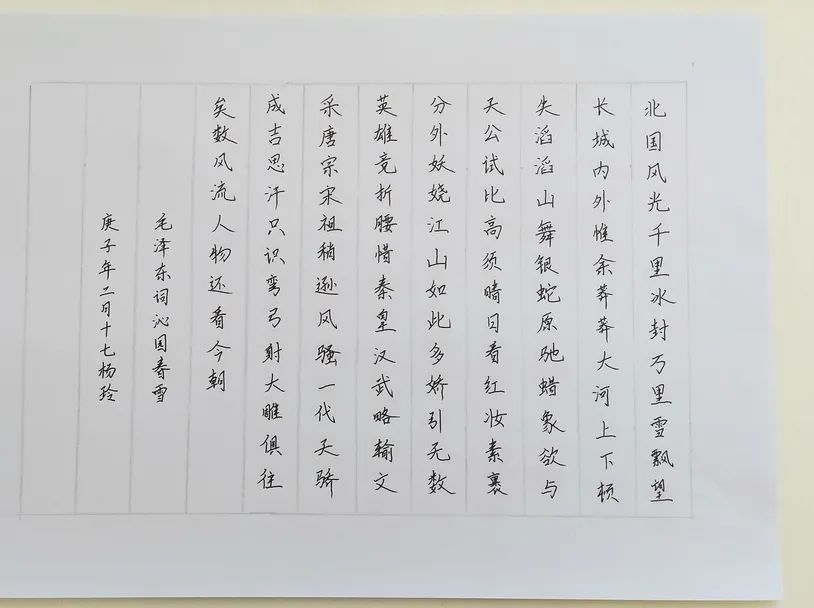 北国风光千里冰封万里雪飘望
长城内外惟余莽莽大河上下顿
失滔滔山舞银蛇原驰蜡象欲与
天公试比高须晴日看红妆素裹
分外妖娆江山如此多娇引无数
英雄竞折腰惜秦皇汉武略输文
采唐宗宋祖稍逊风骚一代天骄
成吉思汗只识弯弓射大雕俱往
矣数风流人物还看今朝
毛泽东词沁园春雪
庚子年二月十七杨玲